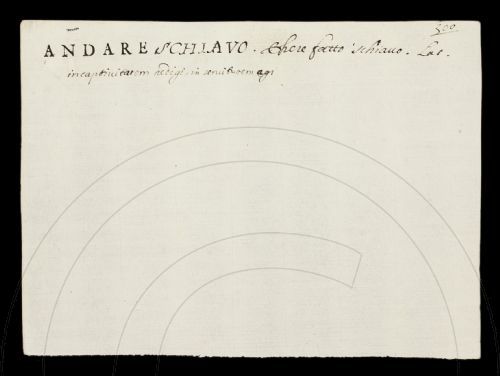 300
ANDARE SCHIAVO. Eßere fatto schiavo. Lat.
in captivitatem redigi, in servitutem agi